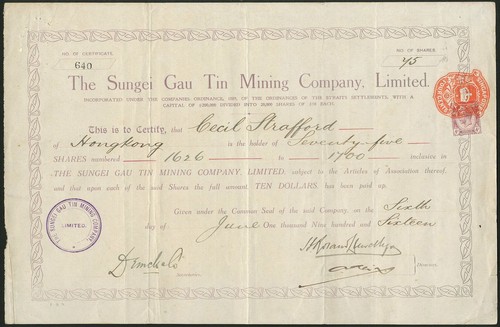 NO. OF CERTIFICATE
640
NO OF SHARES
75
The Sungei Gau Tin Mining Company, Limited.
INCORPORATED UNDER THE COMPANIES ORDINANCE, OF THE ORDINANCES OF THE STRAITS SETTLEMENTS, WITH A
CAPITAL OF DIVIDED INTO SHARES OF $10 EACH.
This is to Certify, that Cecil Strafford
of Hongkong is the holder of Seventy-five
SHARES numbered 1626 to 1700 inclusive in
THE SUNGEI GAU TIN MINING COMPANY, LIMITED, subject to the Articles of Association thereof,
and that upon each of the said Shares the full amount, TEN DOLLARS, has been paid up.
Given under the Common Seal of the said Company, on the Sixth
day of June One thousand Nine hundred and Sixteen
THE SUNGEI GAU TIN MINING COMPANY,
LIMITED.